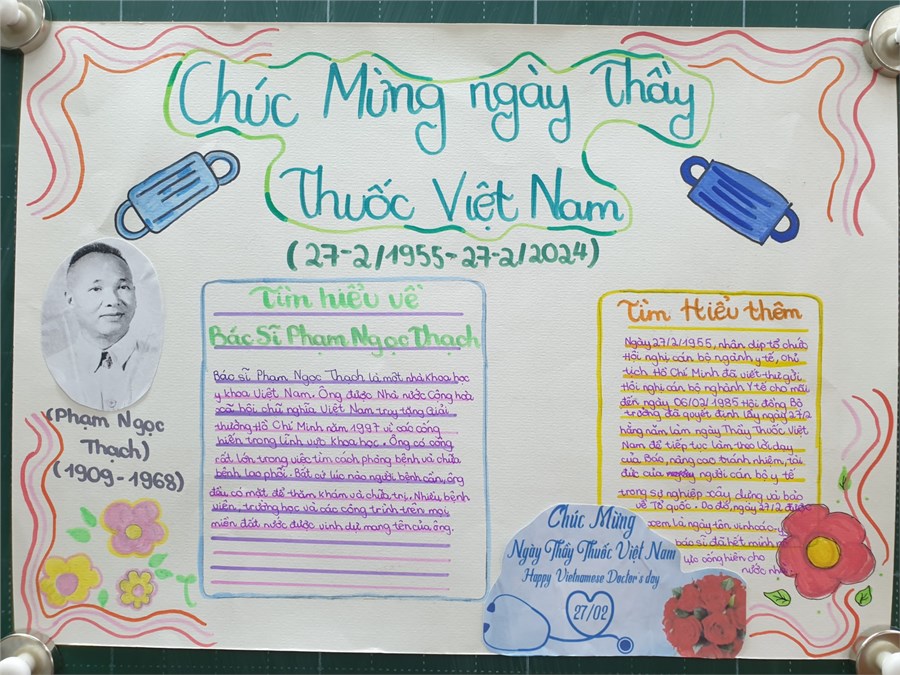 Chúc Mừng ngày Thầy
Thuốc Việt Nam
(27-2/1955-27-2/2024)
(Phạm Ngọc
Thạch)
(1909-1968)
Tìm hiểu về
Bác Sĩ Phạm Ngọc Thạch
Bác sĩ Phạm Ngọc Thạch là một nhà khoa học
y khoa Việt Nam. Ông được Nhà nước Cộng hoà
xã hội chủ nghĩa Việt Nam truy tặng Giải
thưởng Hồ Chí Minh năm 1997 vì các cống
hiến trong lĩnh vực khoa học. Ông có công
rất lớn trong việc tìm cách phòng bệnh và chữa
bệnh lao phổi. Bất cứ lúc nào người bệnh cần, ông
đều có mặt để thăm khám và chữa trị. Nhiều bệnh
viện, trường học và các công trình trên mọi
miền đất nước được vinh dự mang tên của ông.
Tìm Hiểu thêm
Ngày 27/2/1955, nhân dịp tổ chức
Hội nghị cán bộ ngành y tế, Chủ
tịch Hồ Chí Minh đã viết thư gửi
Hội nghị cán bộ nghành Y tế cho mãi
đến ngày 06/02/1985 Hội đồng Bộ
trưởng đã quyết định lấy ngày 27/2
hằng năm làm ngày Thầy Thuốc Việt
Nam để tiếp tục làm theo lời dạy
của Bác, nâng cao trách nhiệm, tài
đức của người cán bộ y tế
trong sự nghiệp xây dựng và bảo
vệ Tổ quốc. Do đó, ngày 27/2 được
xem là ngày tôn vinh các y
bác sĩ đã hết mình
lực cống hiến cho
nước nhà.
Chúc Mừng
Ngày Thầy Thuốc Việt Nam
Happy Vietnamese Doctor's day
27/02